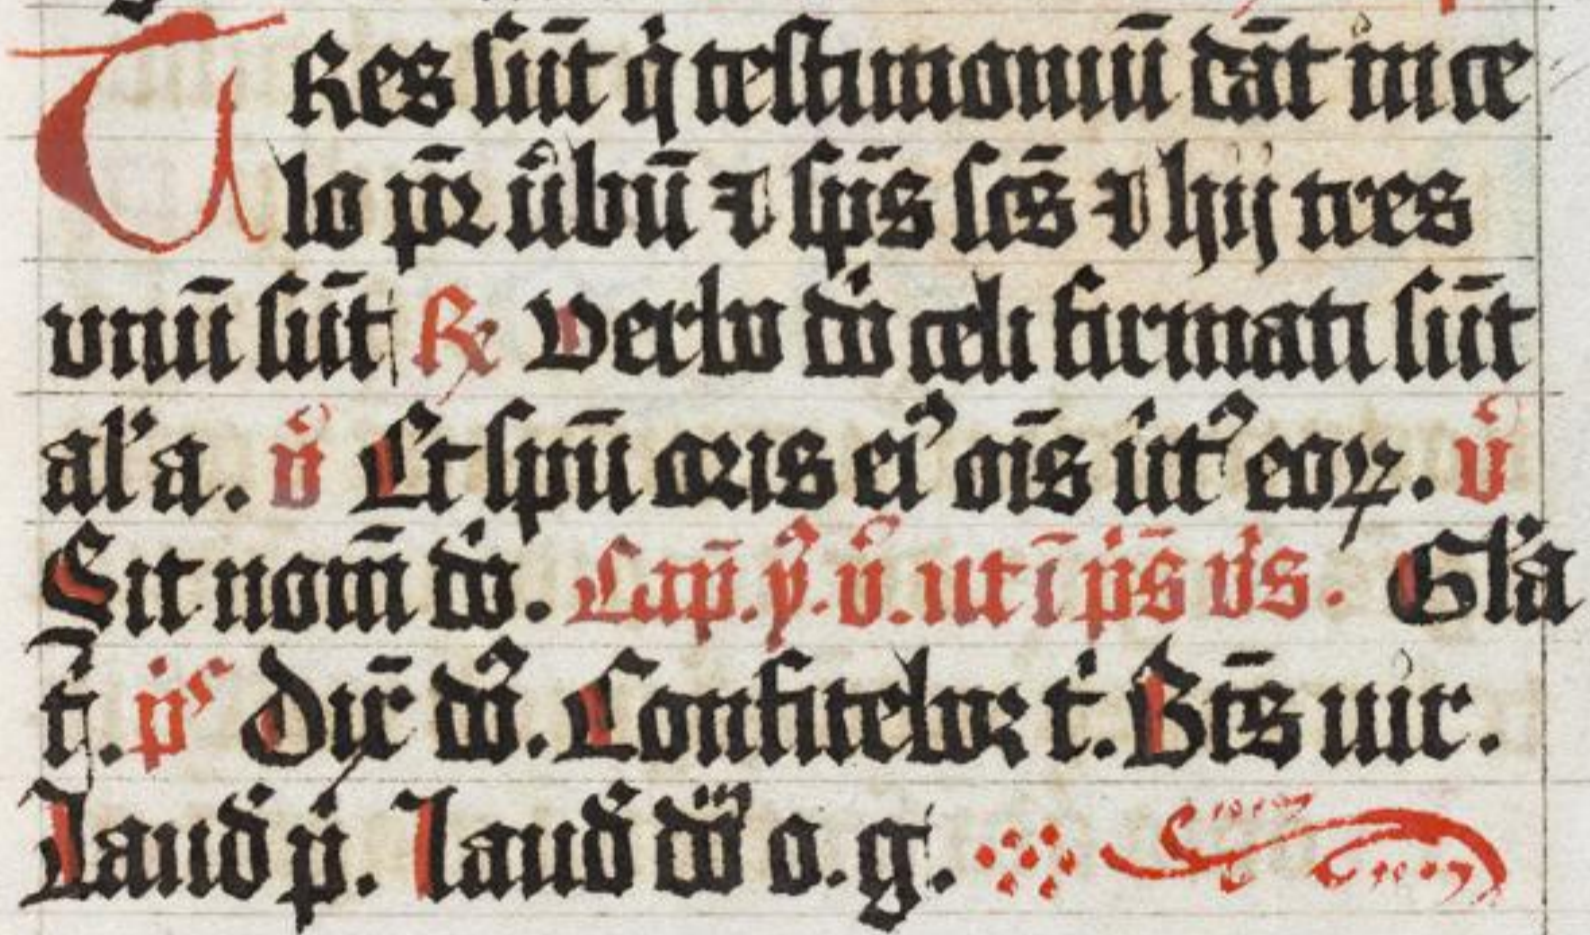 TRes sūt q̇ testimoniū dāt in ce
lo pr̄ u̇bū ⁊ sp̄s scs̄ ⁊ hij tres
vnū sūt ℟ Verbo dn̄i celi firmati sūt
al'a. v̇ Et spū oris ei⁹ oīs u̇t⁹ eoꝝ. v̇
Sit nom̄ dn̄i. Cap̄. y̾. v̇. ut ī p̓s̄ vs̓. Gl'a
t̄. ps̓ Dix̄ dn̄s. Confitebor t̓. Bt̄s uir.
Laud̓ p̓. laud̓ dn̄m o. g.